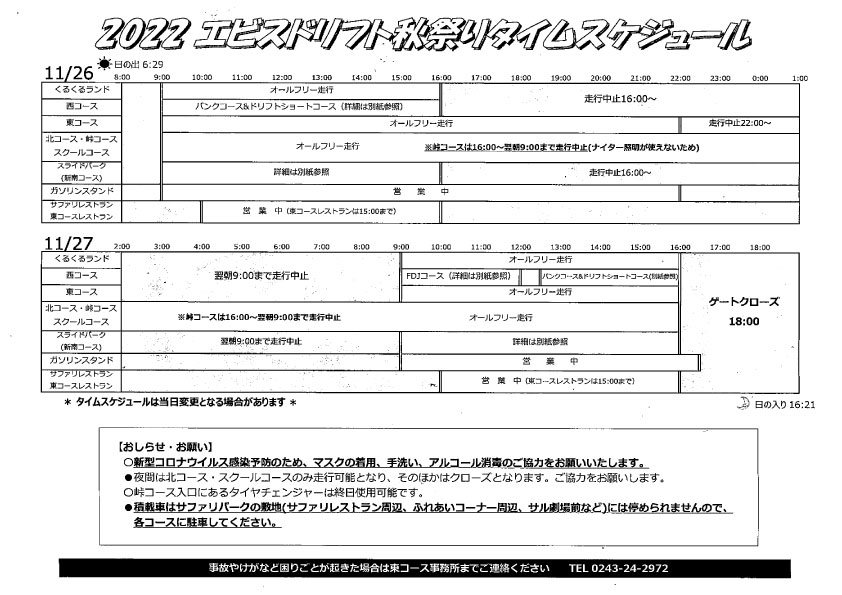 2022 エビスドリフト秋祭りタイムスケジュール
11/26
日の出 6:29
8:00 9:00 10:00 11:00 12:00 13:00 14:00 15:00 16:00 17:00 18:00 19:00 20:00 21:00 22:00 23:00 0:00 1:00
くるくるランド
オールフリー走行
走行中止16:00～
西コース
バンクコース&ドリフトショートコース（詳細は別紙参照）
東コース
オールフリー走行
走行中止22:00～
北コース・峠コース
スクールコース
オールフリー走行
※峠コースは16:00～翌朝9:00まで走行中止(ナイター照明が使えないため)
スライドパーク
(新南コース)
詳細は別紙参照
走行中止16:00～
ガソリンスタンド
営 業 中
サファリレストラン
東コースレストラン
営 業 中（東コースレストランは15:00まで）
11/27
2:00 3:00 4:00 5:00 6:00 7:00 8:00 9:00 10:00 11:00 12:00 13:00 14:00 15:00 16:00 17:00 18:00
くるくるランド
オールフリー走行
西コース
翌朝9:00まで走行中止
FDJコース（詳細は別紙参照）
バンクコース&ドリフトショートコース(別紙参照)
東コース
オールフリー走行
ゲートクローズ
18:00
北コース・峠コース
スクールコース
※峠コースは16:00～翌朝9:00まで走行中止
オールフリー走行
スライドパーク
(新南コース)
翌朝9:00まで走行中止
詳細は別紙参照
ガソリンスタンド
営 業 中
サファリレストラン
東コースレストラン
営 業 中（東コースレストランは15:00まで）
＊ タイムスケジュールは当日変更となる場合があります ＊
日の入り 16:21
【おしらせ・お願い】
○新型コロナウイルス感染予防のため、マスクの着用、手洗い、アルコール消毒のご協力をお願いいたします。
●夜間は北コース・スクールコースのみ走行可能となり、そのほかはクローズとなります。ご協力をお願いします。
○峠コース入口にあるタイヤチェンジャーは終日使用可能です。
●積載車はサファリパークの敷地(サファリレストラン周辺、ふれあいコーナー周辺、サル劇場前など)には停められませんので、
各コースに駐車してください。
事故やけがなど困りごとが起きた場合は東コース事務所までご連絡ください TEL 0243-24-2972